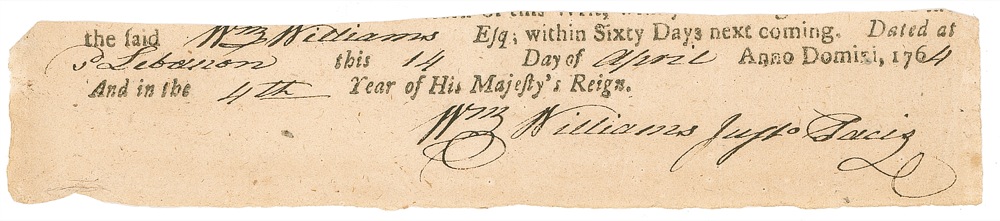 of this Writ,
the ſaid Wm Williams Eſq; within Sixty Days next coming. Dated at
sd Lebanon this 14 Day of April Anno Domini, 1764
And in the 4th Year of His Majeſty's Reign.
Wm Williams Just Pacis